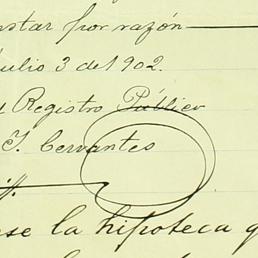 nstar por razón
ulio 3 de 1902.
Registro Público
J. Cervantes
se la hipoteca q